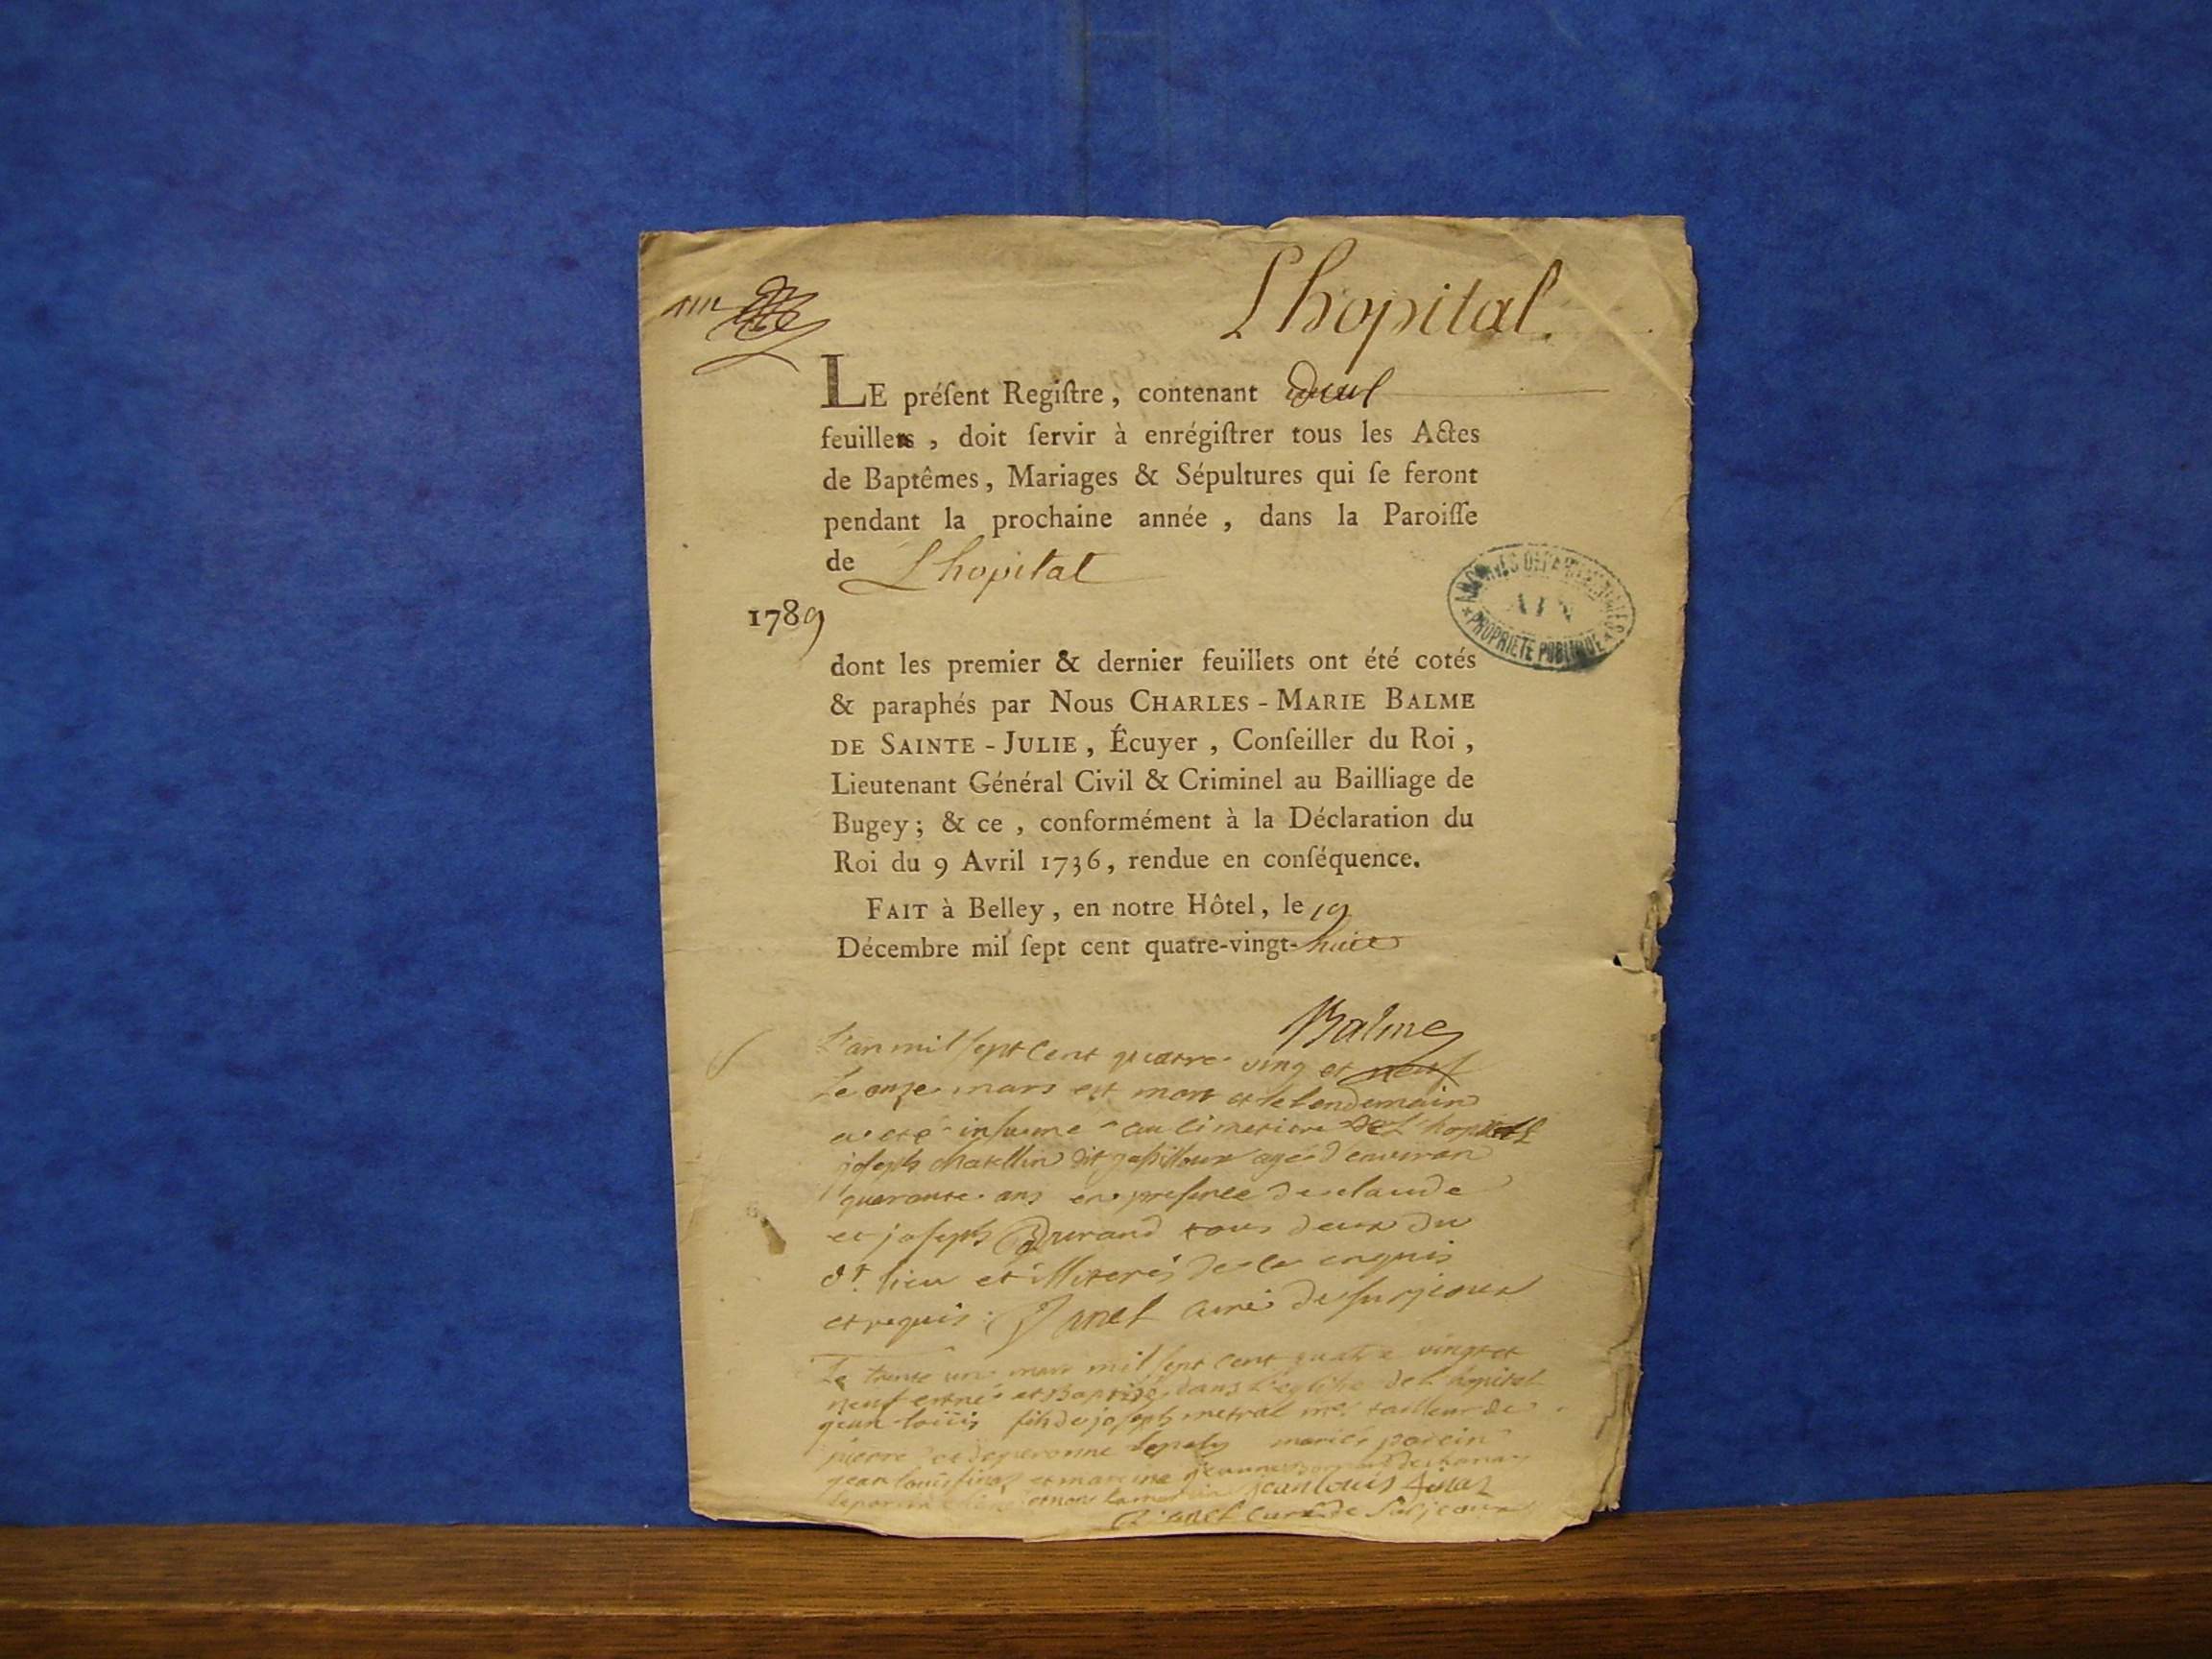 Lhopital.
LE préſent Regiſtre, contenant
feuillets, doit ſervir à enrégiſtrer tous les Actes
de Baptêmes, Mariages & Sépultures qui ſe feront
pendant la prochaine année, dans la Paroiſſe
de Lhopital
1789
ARCHIVES DÉPARTEMENTALES
AIN
PROPRIÉTÉ PUBLIQUE
dont les premier & dernier feuillets ont été cotés
& paraphés par Nous CHARLES-MARIE BALME
DE SAINTE-JULIE, Écuyer, Conſeiller du Roi,
Lieutenant Général Civil & Criminel au Bailliage de
Bugey; & ce, conformément à la Déclaration du
Roi du 9 Avril 1736, rendue en conſéquence.
FAIT à Belley, en notre Hôtel, le 19
Décembre mil ſept cent quatre-vingt-huit
Balme
L'an mil sept cent quatre ving et neuf
le onze mars est mort et le lendemain
a eté inhumé au cimetiere de L'hopital
joseph dit agé d'environ
quarante ans en presence de claude
et joseph Durand tous deux du
dt. lieu et illiterés de ce enquis
et requis. Janet curé de surjoux
Le trente un mars mil sept cent quatre vingt et
neuf est né et Baptisé dans l'eglise de l'hopital
jean loüis fils de joseph metral me. tailleur de
pierre et de peronne mariés parein
jean louis finaz et mareine
jean louis finaz
Janet curé de Surjoux